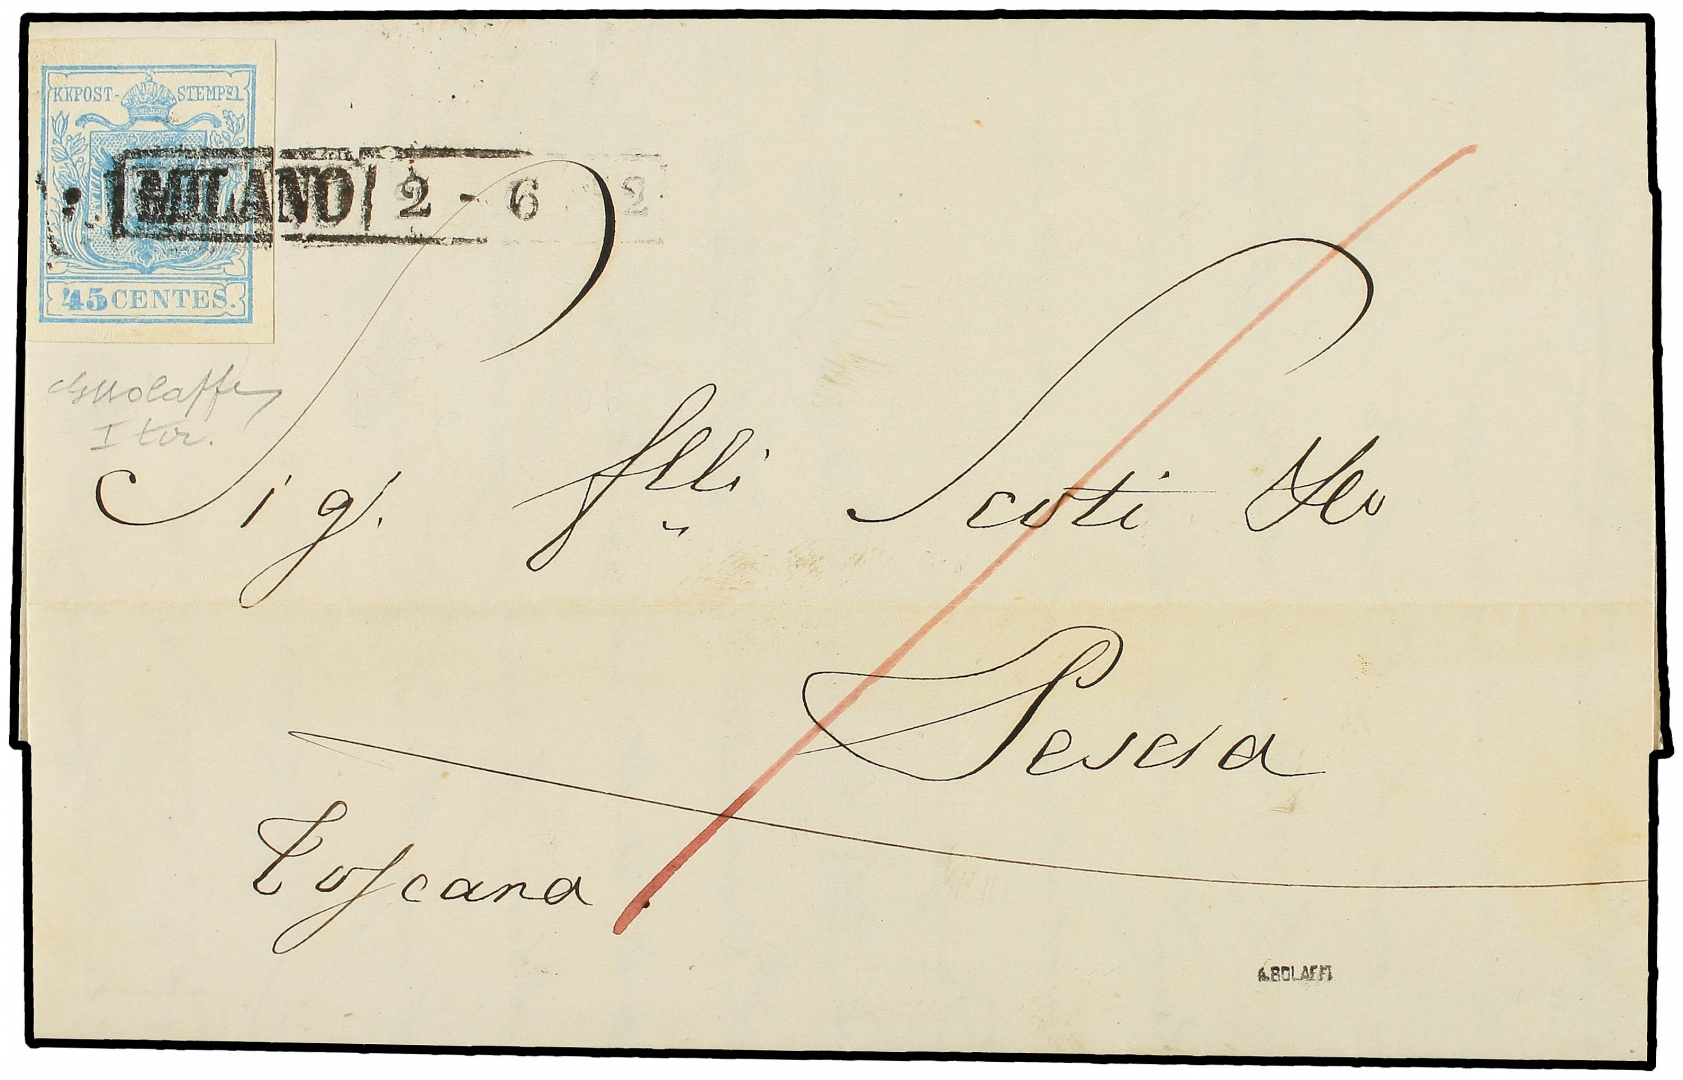 KKPOST- STEMPEL
MILANO 2 - 6 2
45 CENTES.
ABolaffi
I tir.
Sig. flli Scoti
Pescia
Toscana.
A.BOLAFFI